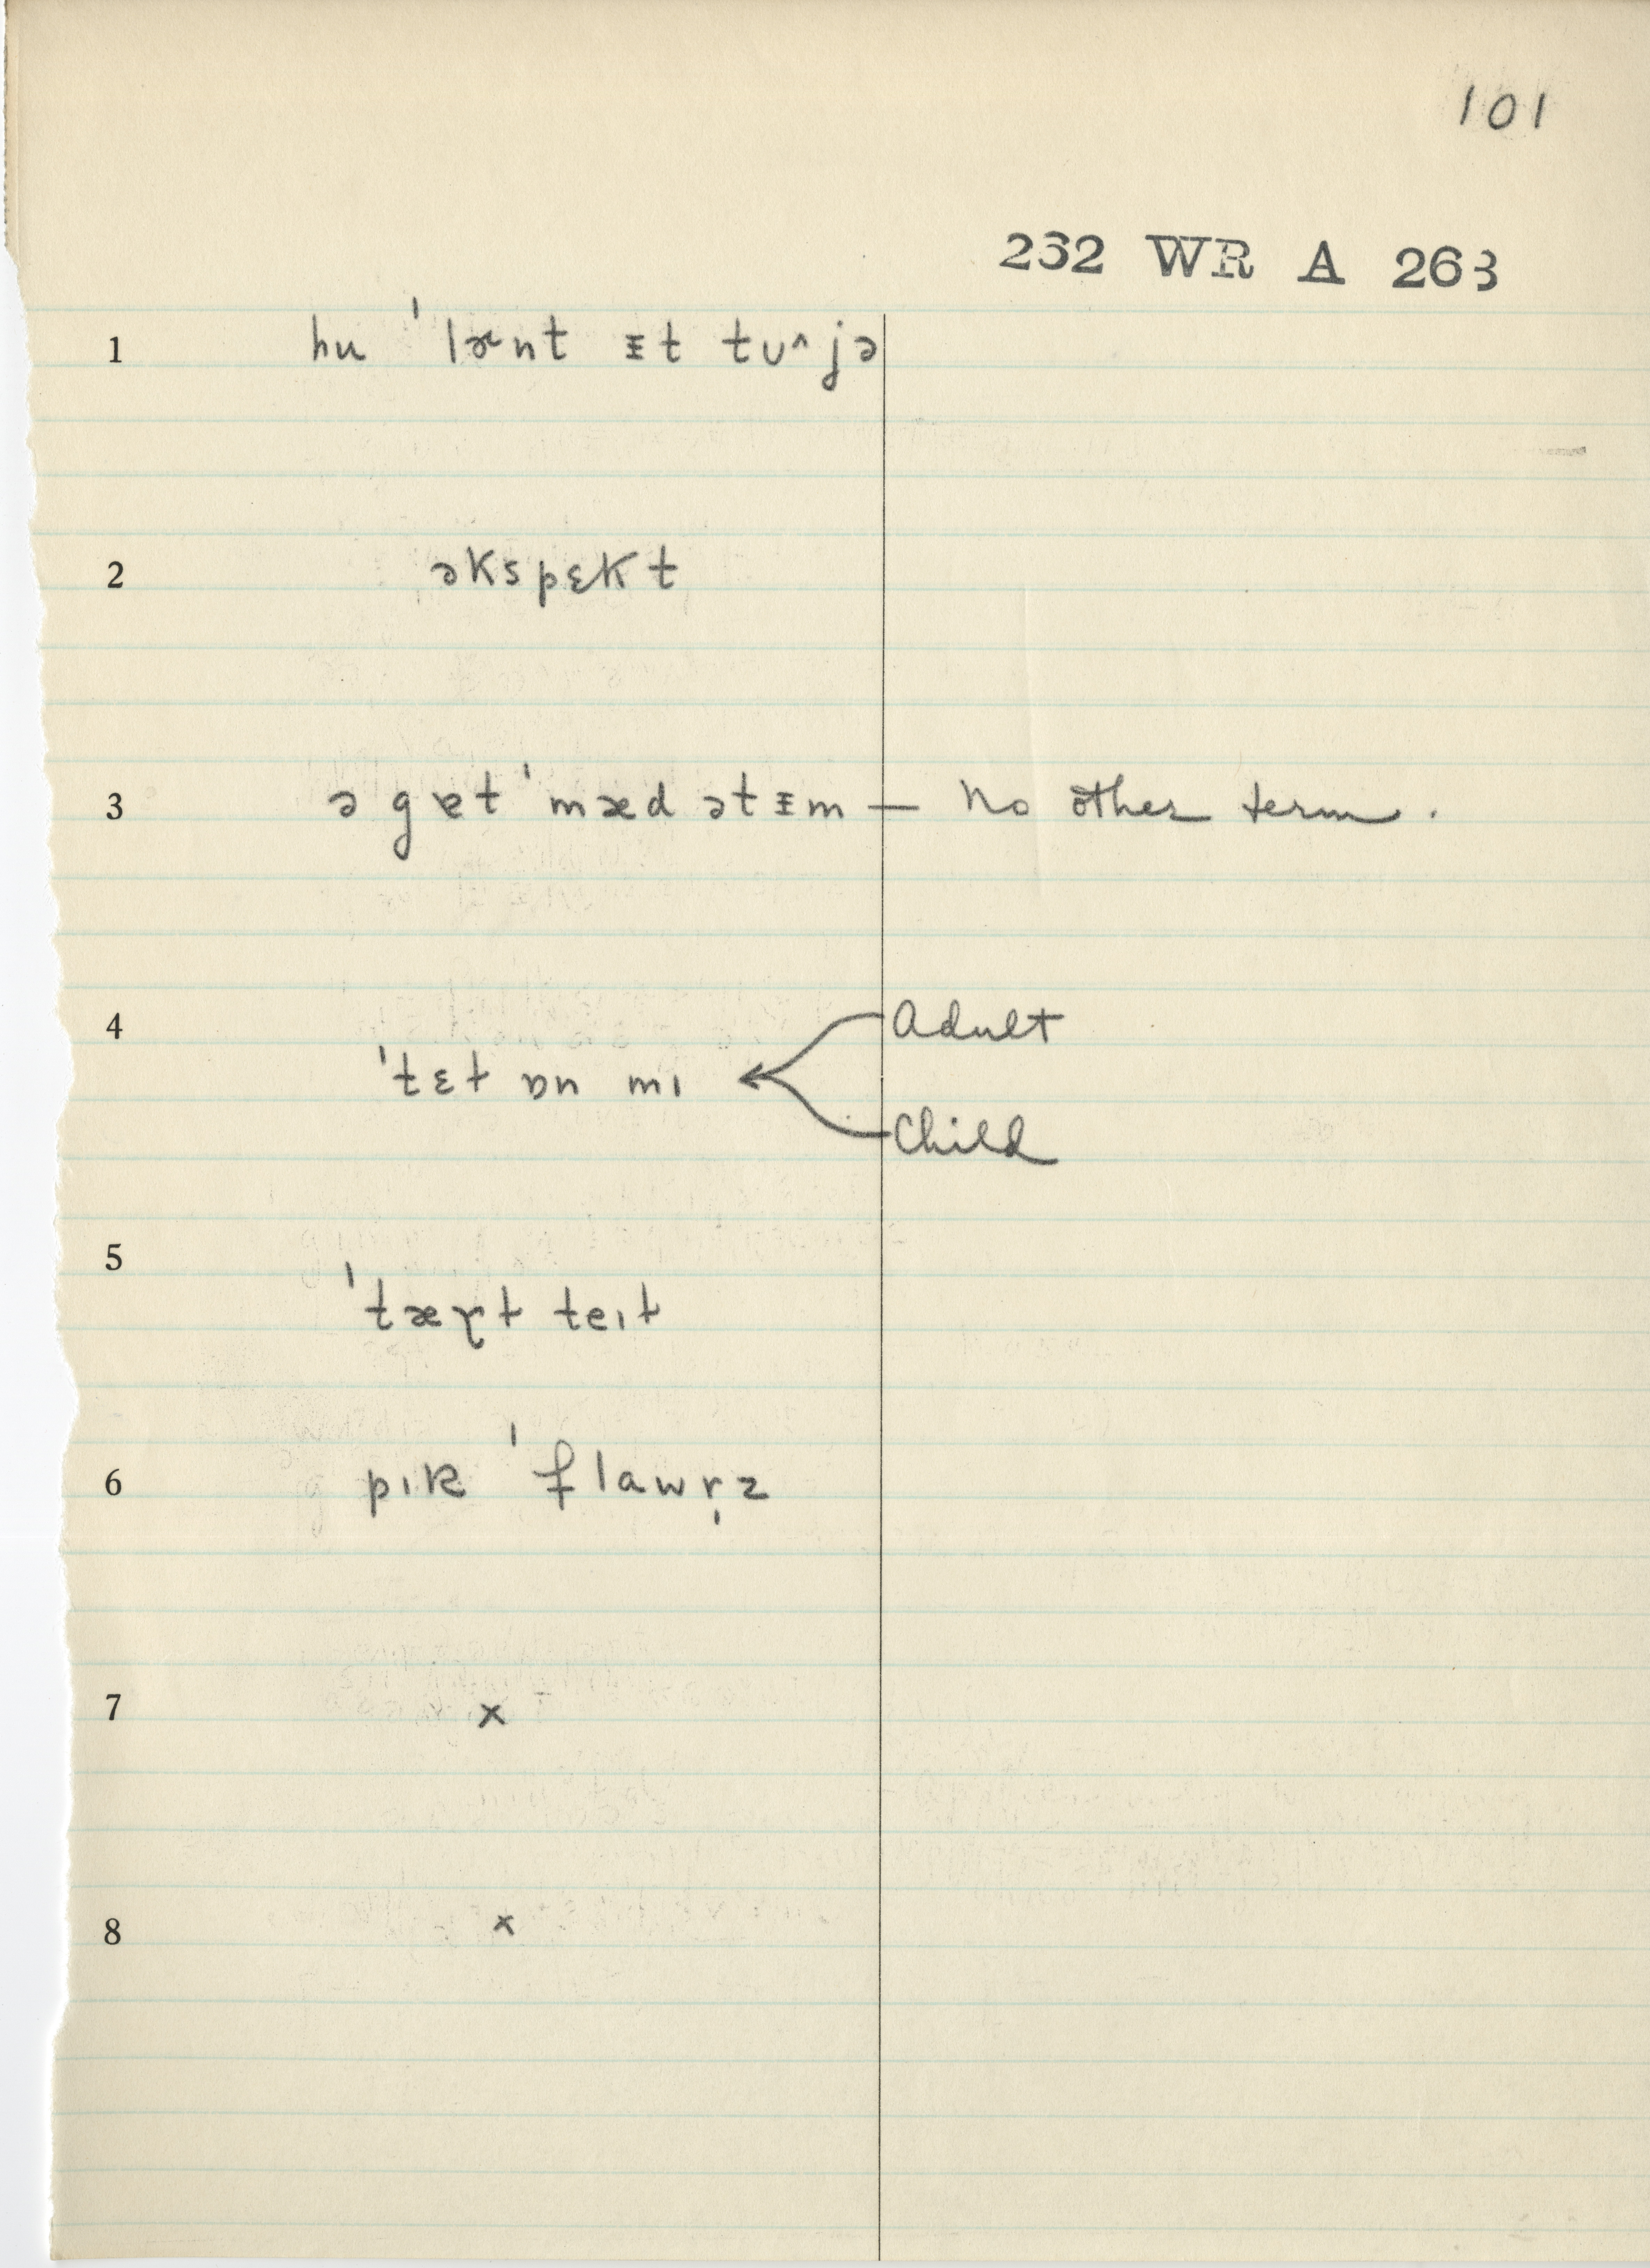 101
232 WR A 263
1 hu ˈlɚnt ᵻt tʊ^jə
2 əkspɛkt
3 ə gɐt ˈmæd ətᵻm — No other term.
4 Adult
ˈtɛt ɒn mɪ
Child
5 ˈtært teɪt
6 pɪk ˈflawr̩z
7 x
8 x